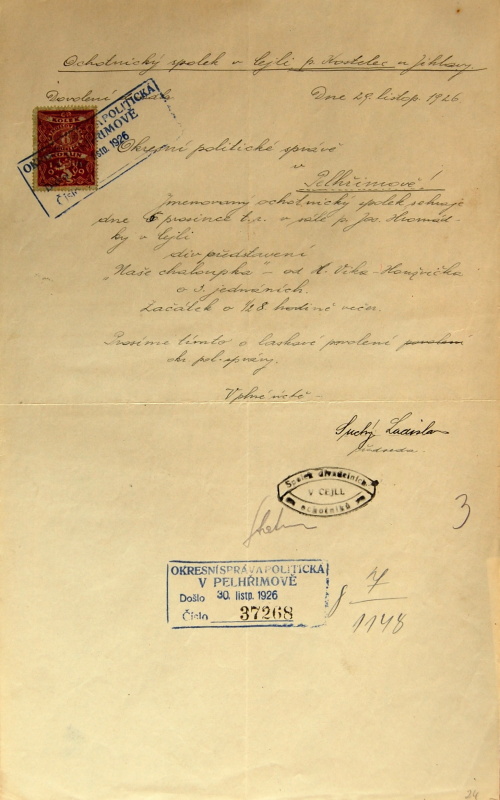 Ochotnický spolek v Cejli p. Kostelec u Jihlavy.
Dovolení
Dne 29. listop. 1926
KOLEK
OKRESNÍ SPRÁVA POLITICKÁ
V PELHŘIMOVĚ
listp. 1926
Číslo
Okresní politické správě
v
Pelhřimově!
Jmenovaný ochotnický spolek sehraje
dne 5 prosince t.r. v sále p. Jos. Hromád-
ky v Cejli
div představení
„Naše chaloupka" – od K. Vika-
o 3. jednáních.
Začátek o ½8 hodině večer.
Prosíme tímto o laskavé povolení povolení
okr. pol. správy.
V plné úctě –
Suchý Ladislav
předseda.
Spolek divadelních
V CEJLI
ochotníků
3
OKRESNÍ SPRÁVA POLITICKÁ
V PELHŘIMOVĚ
Došlo 30. listp. 1926
Číslo 37268
7
1148
24